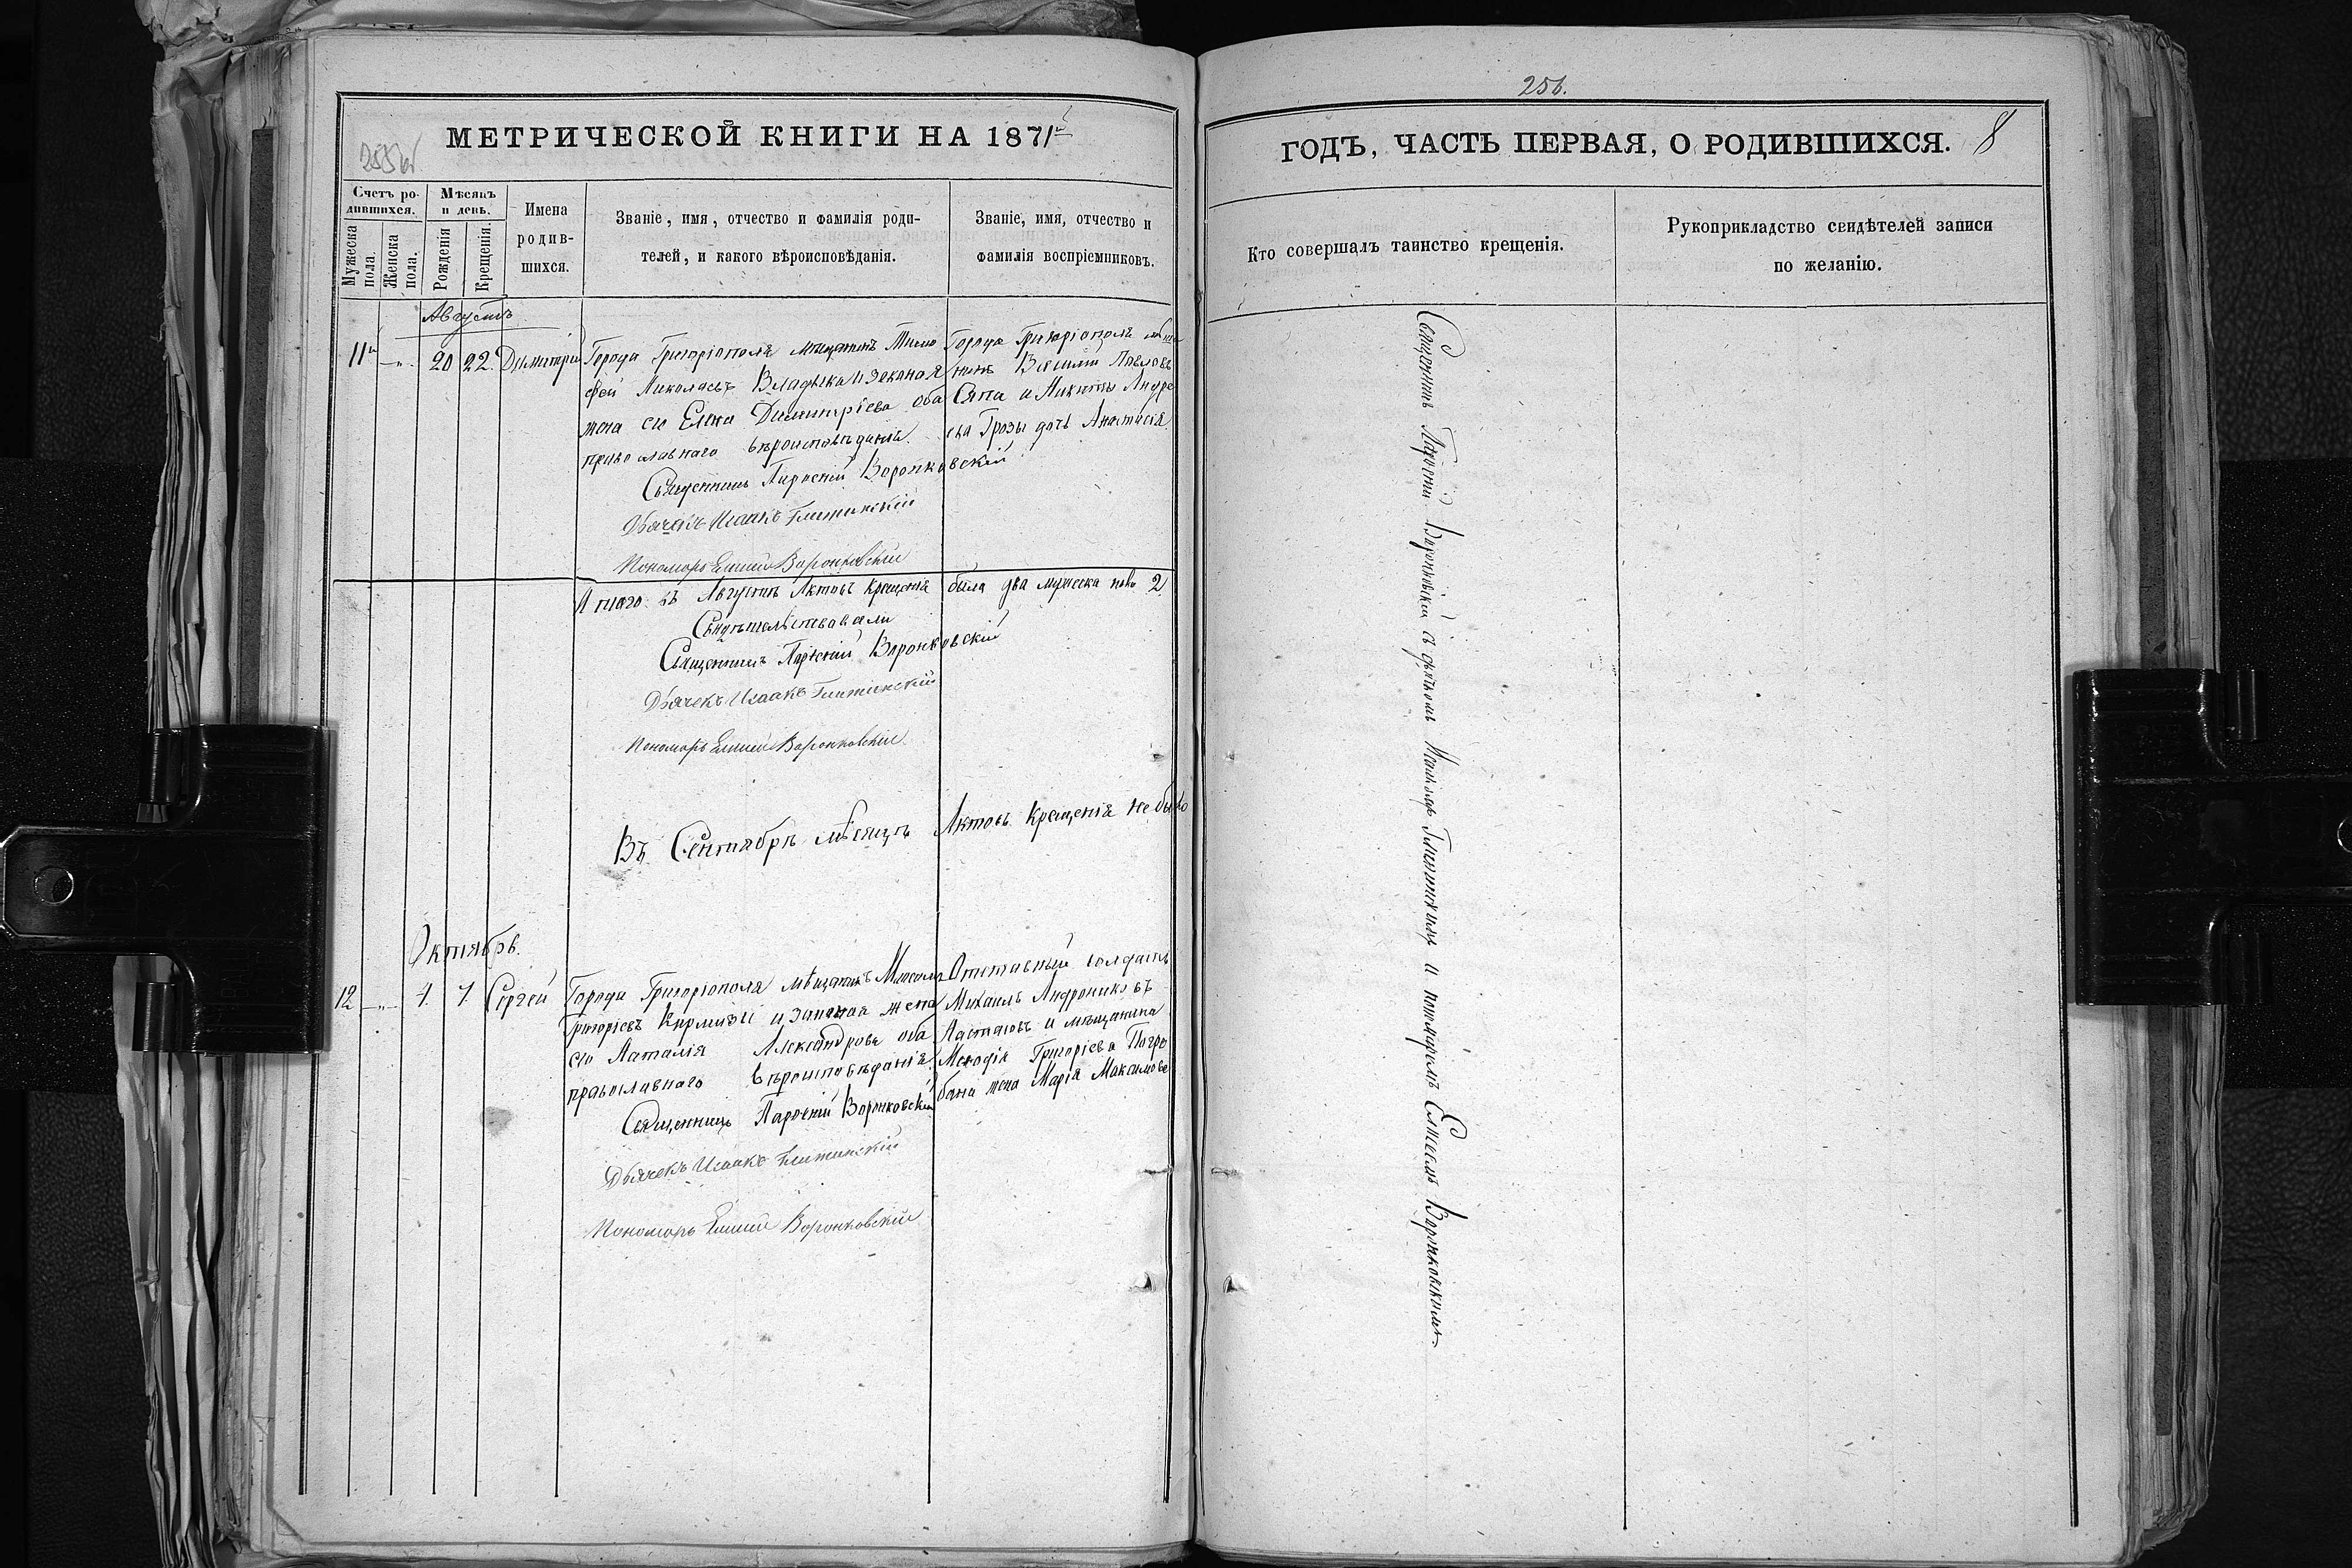 256.
255об
МЕТРИЧЕСКОЙ КНИГИ НА 1871й
ГОДЪ, ЧАСТЬ ПЕРВАЯ, О РОДИВШИХСЯ. 8
Счетъ ро-
дившихся.
Мужеска
пола.
Женска
пола.
Мѣсяцъ
и день.
Рожденія
Крещенія.
Имена
родив-
шихся.
Званіе, имя, отчество и фамилія роди-
телей, и какого вѣроисповѣданія.
Званіе, имя, отчество и
фамилія воспріемниковъ.
Кто совершалъ таинство крещенія.
Рукоприкладство свидѣтелей записи
по желанію.
Августъ
11й
20
22.
Димитрій
Города Григоріополя мѣщанинъ Тимо
фей Николаевъ Владыка и законая
жена его Елена Димитріева оба
православнаго вѣроисповѣданія.
Города Григоріополя мѣща
нинъ Василій Павловъ
Сяпа и Никиты Андре
ева Грозы дочь Анастасія.
Священникъ Паρѳеній Воронковскій
Дьячекъ Исаакъ Глижинскій
Пономарь Елисей Воронковскій
А итаго въ Августѣ Актовъ Крещенія было два мужеска пола 2
Свидѣтельствовали
Священникъ Парѳеній Воронковскій
Дьячекъ Исаакъ
Пономарь Елисей Воронковскій
Въ Сентябрѣ мѣсяцѣ Актовъ Крещенія не было
Октябрь.
12
Сергей
Города Григоріополя мѣщанинъ
Григоріевъ и законая жена
его Наталія Александрова оба
православнаго вѣроисповѣданія.
Отставный солдатъ
Михаилъ Андрониковъ
и мѣщанина
Меѳодія Григоріева
жена Марія Максимова
Священникъ Парѳеній Воронковскій
Дьячекъ Исаакъ
Пономарь Елисей Воронковскій
Священникъ Парѳеній Воронковскій съ дьячкомъ Исаакомъ и пономаремъ Елисеемъ Воронковскимъ.